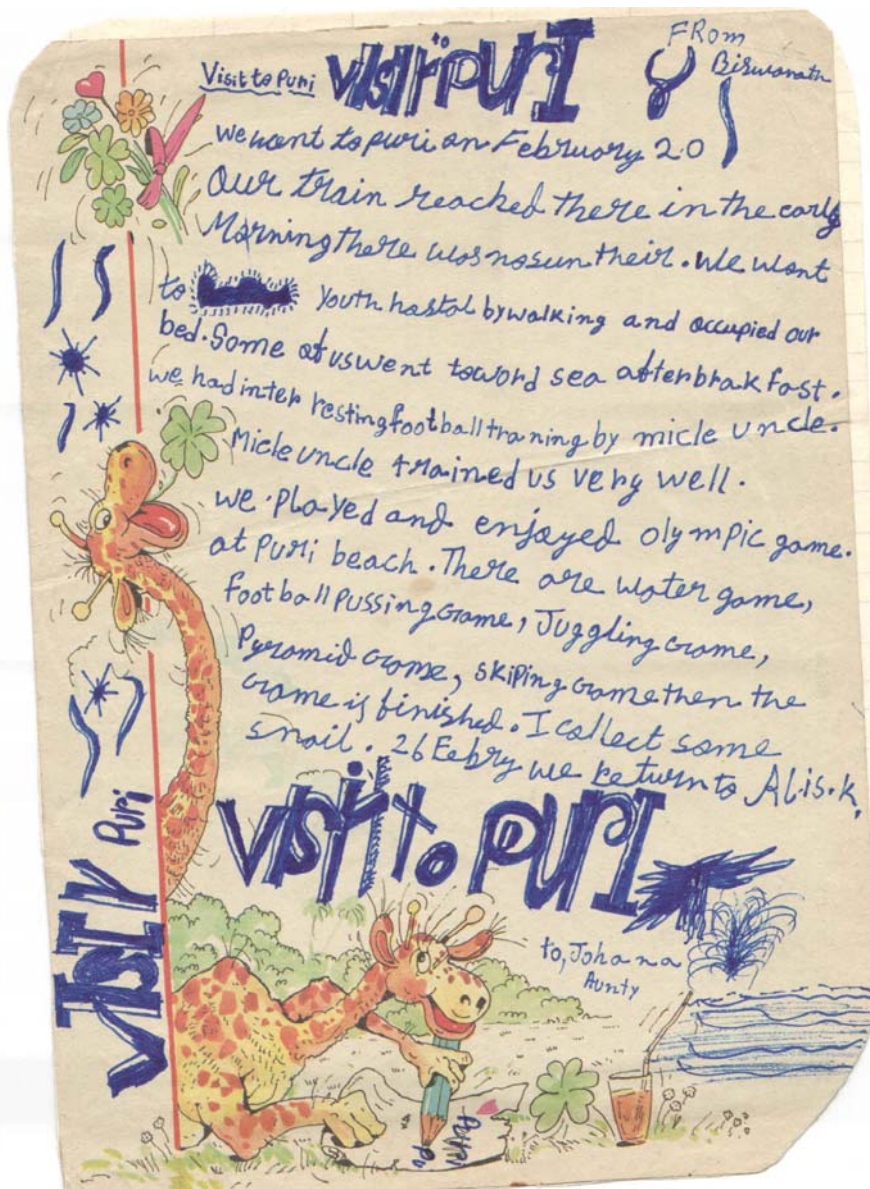 FROM
Biswanath
Visit to Puri
visit to PURI
we went to puri on February 20
Our train reached there in the early
Morning there was no sun their. We want
to Youth hostol by walking and occupied our
bed. Some of us went toword sea after brakfast.
we had inter resting football traning by micle uncle.
Micle uncle trained us very well.
we played and enjoyed olympic game.
at Puri beach. There are water game,
football Pussing Game, Juggling Game,
Pyramid Game, skiping Game then the
Game is finished. I collect some
snail. 26 Eebry we return to Al.is.k.
visit to PURI
to, Johana
Aunty
VISIT
Puri
Puri